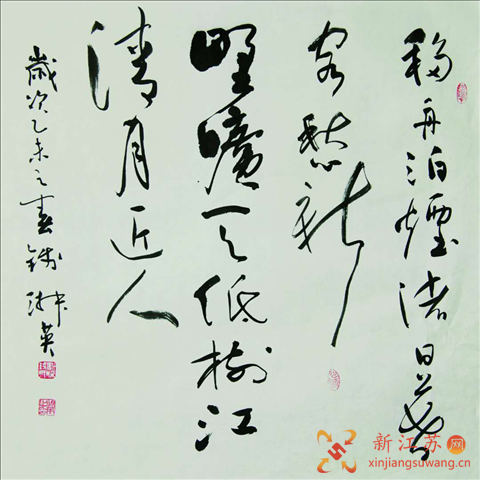 移舟泊煙渚日暮
客愁新
野曠天低樹江
清月近人
歲次乙未之春錢 英
新江苏网
xinjiangsuwang.cn